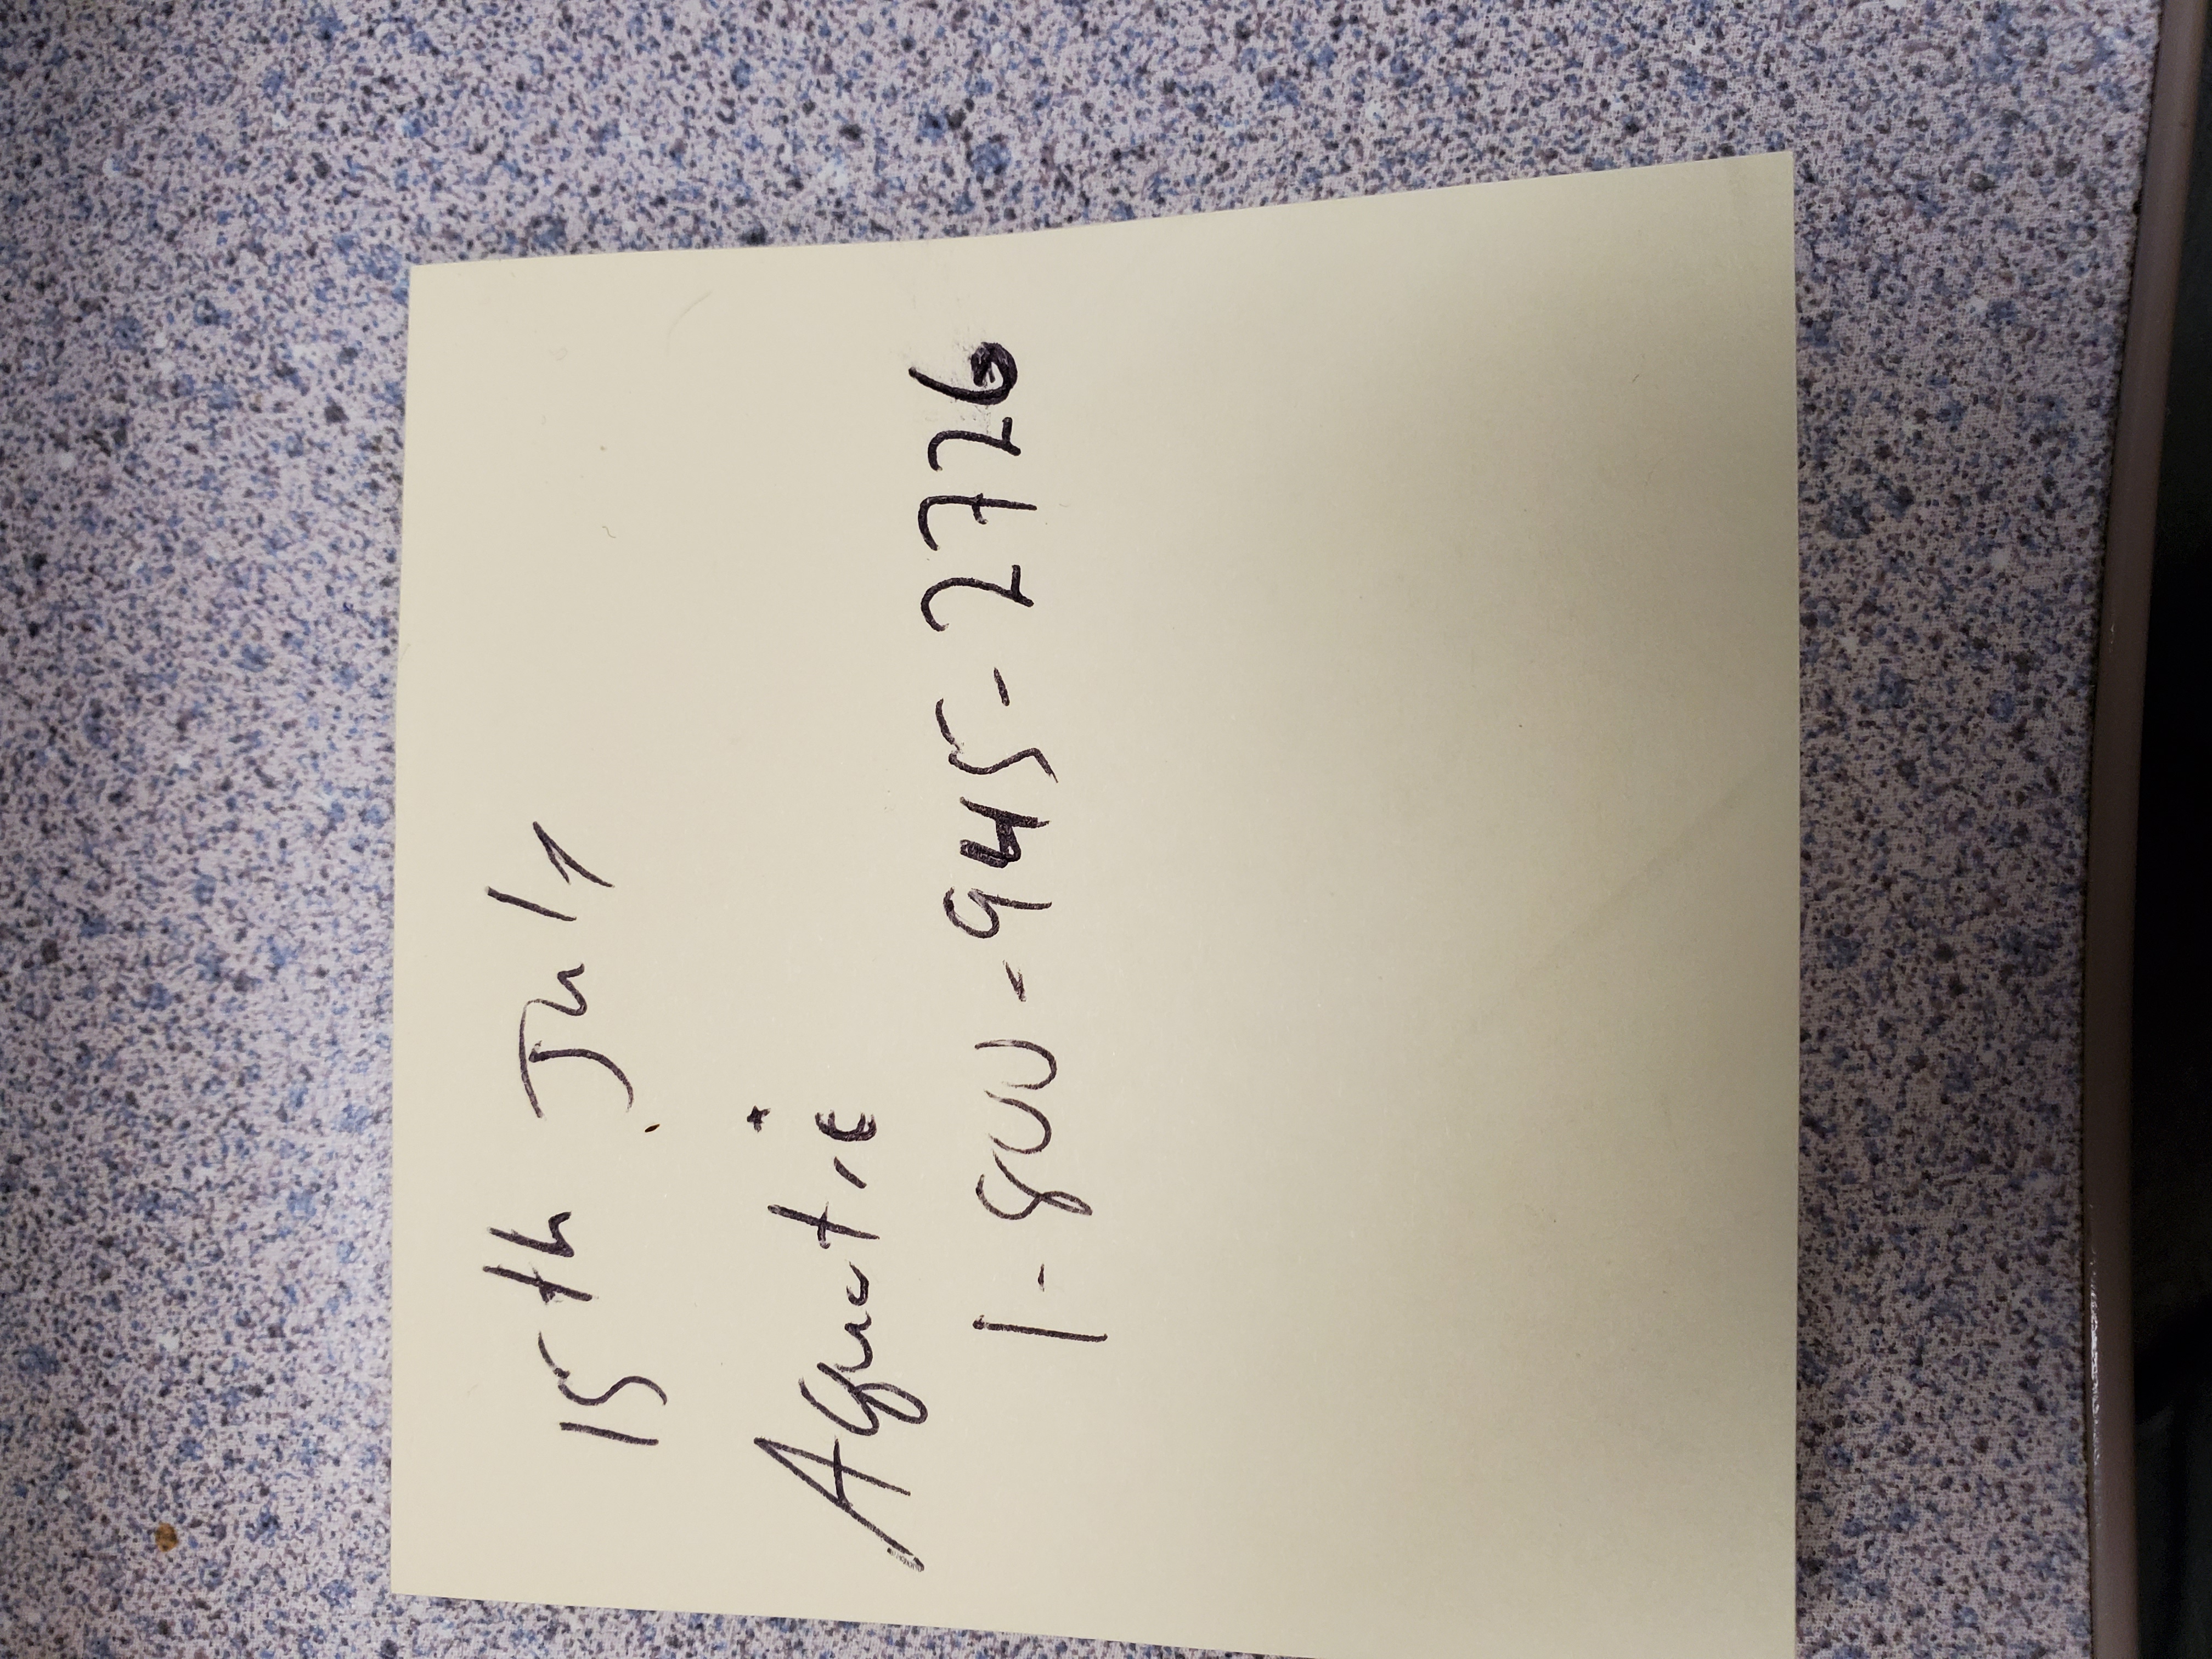 15th July
Aquatic
1-800-945-2726